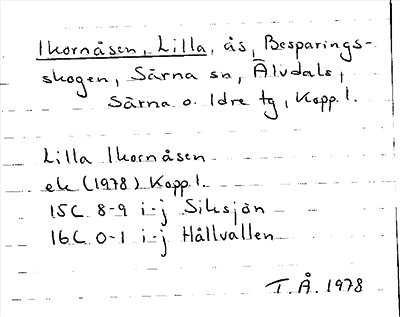 Ikornåsen, Lilla, ås, Besparings-
skogen, Särna sn, Älvdals,
Särna o. Idre tg, Kopp. l.
Lilla Ikornåsen
ek (1978) Kopp l.
15C 8-9 i-j Siksjön
16C 0-1 i-j Hållvallen
T.Å. 1978